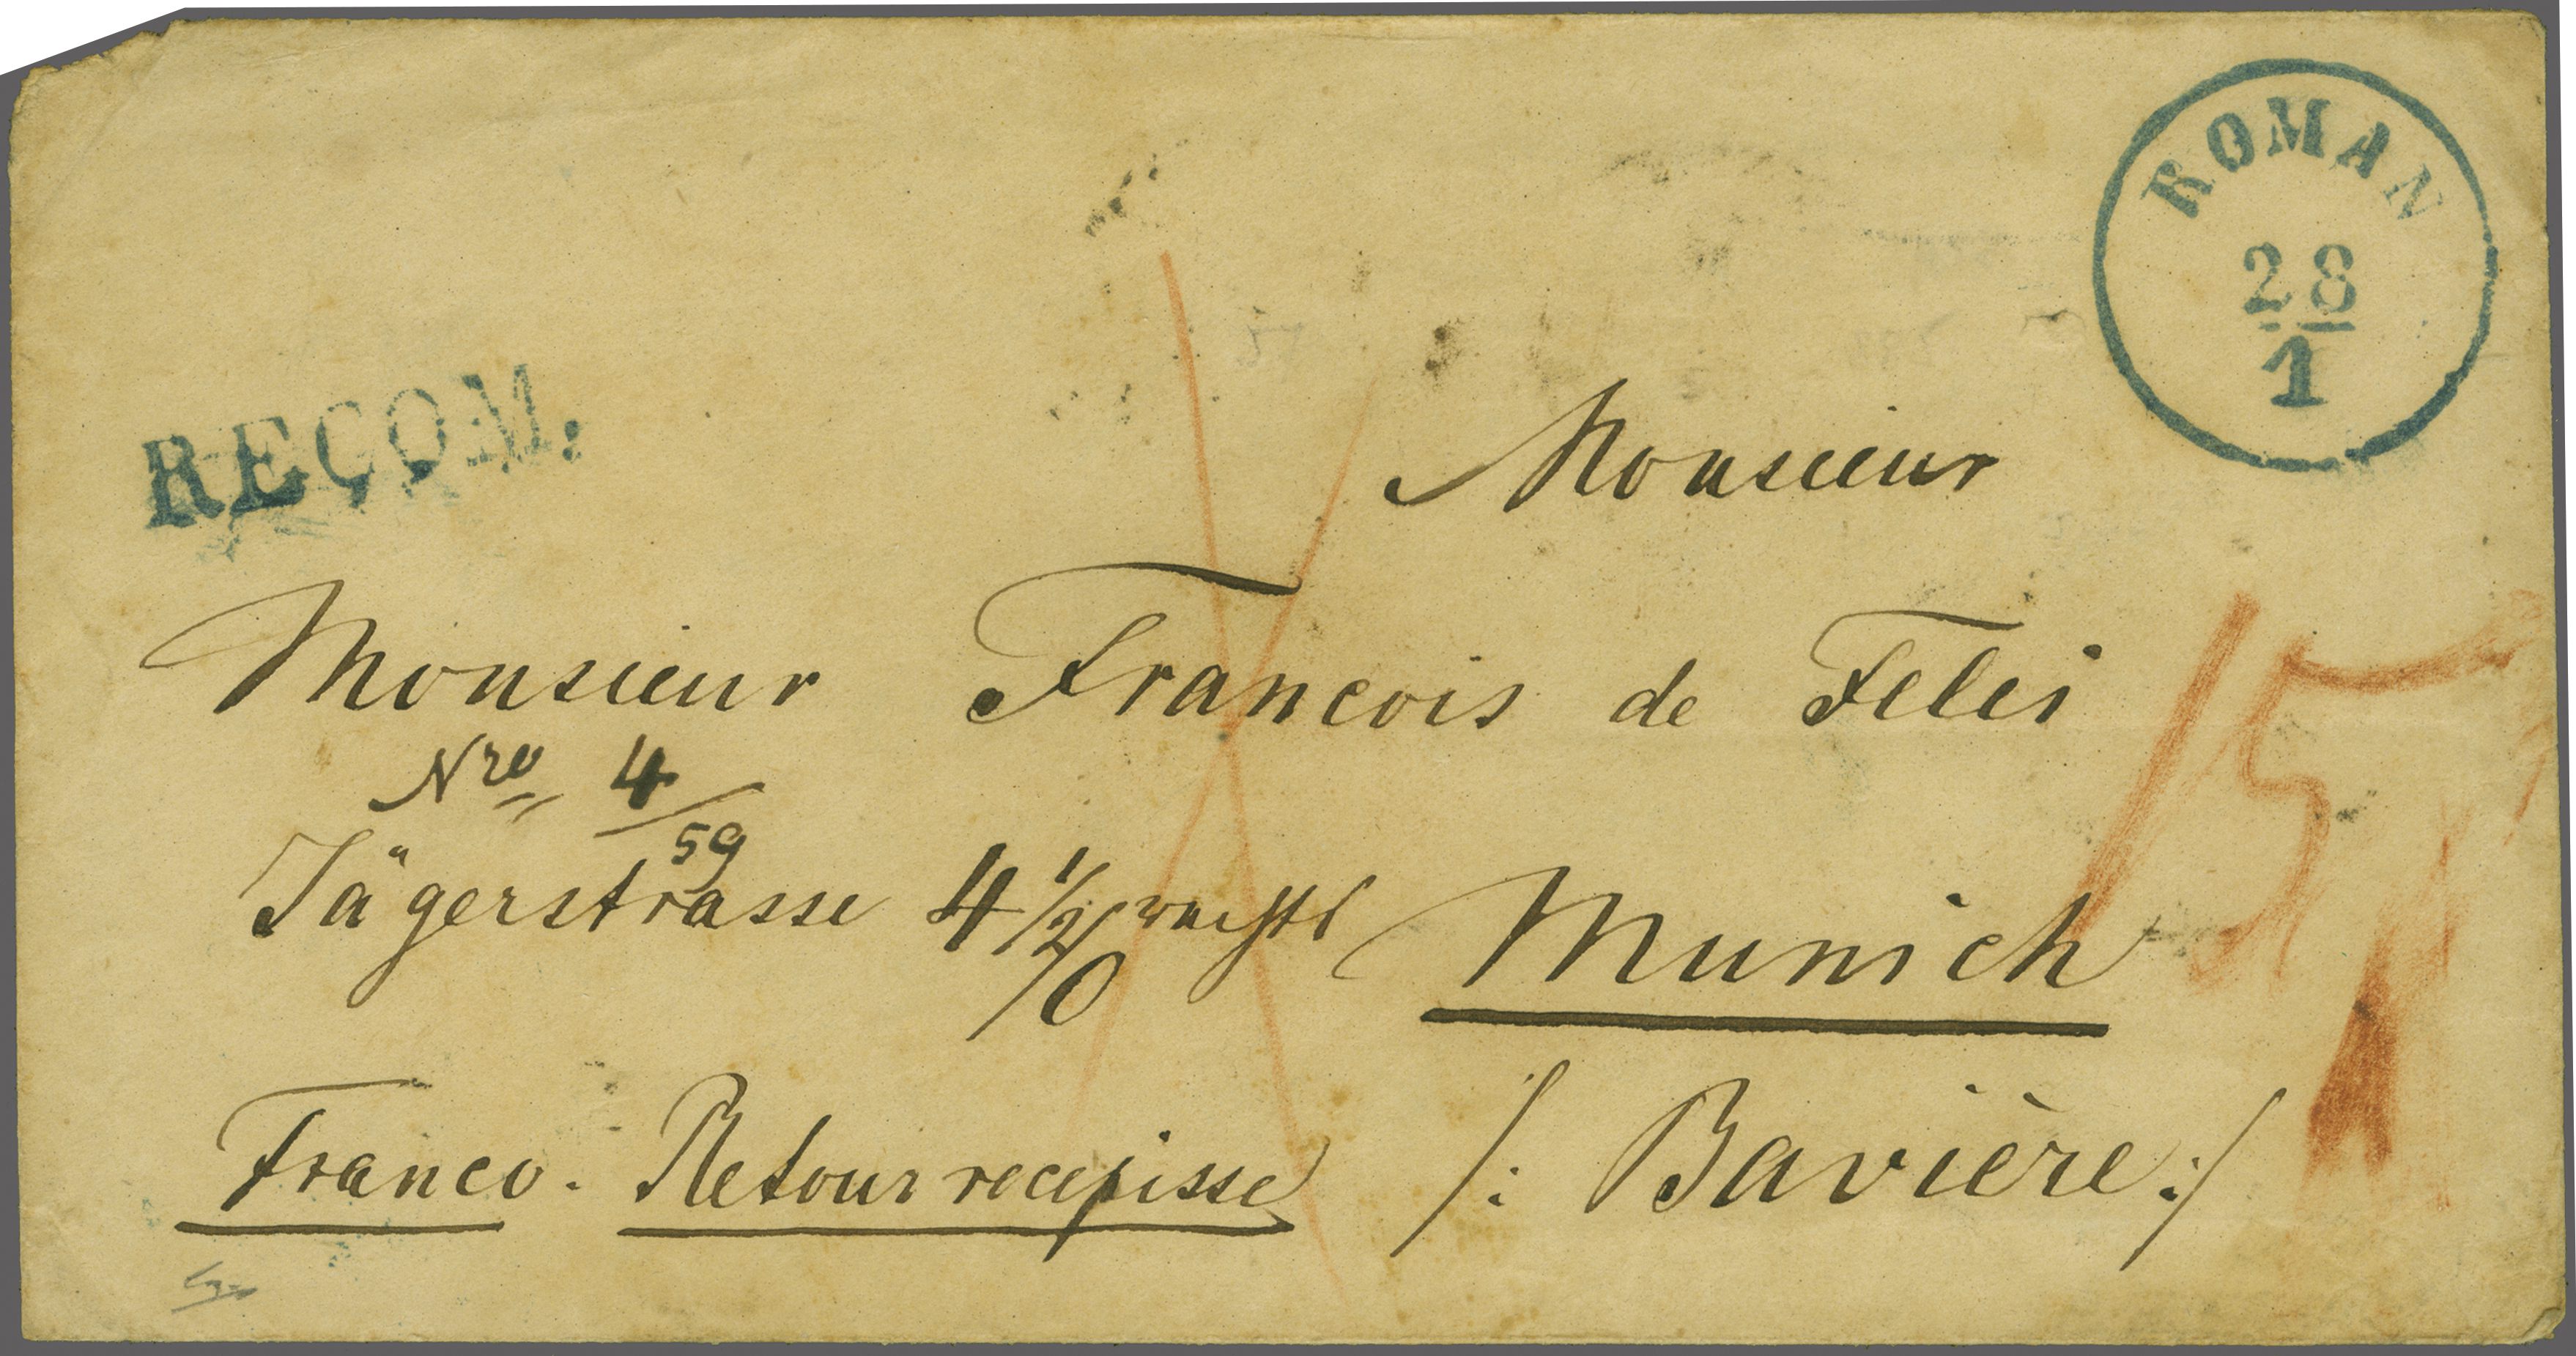 ROMAN
28
1
RECOM:
Monsieur
Monsieur Francois de Felei
Nro 4/59
15
Jägerstrasse 4 1/2/0 rechts Munich
Franco. Retour recepisse /: Bavière :/